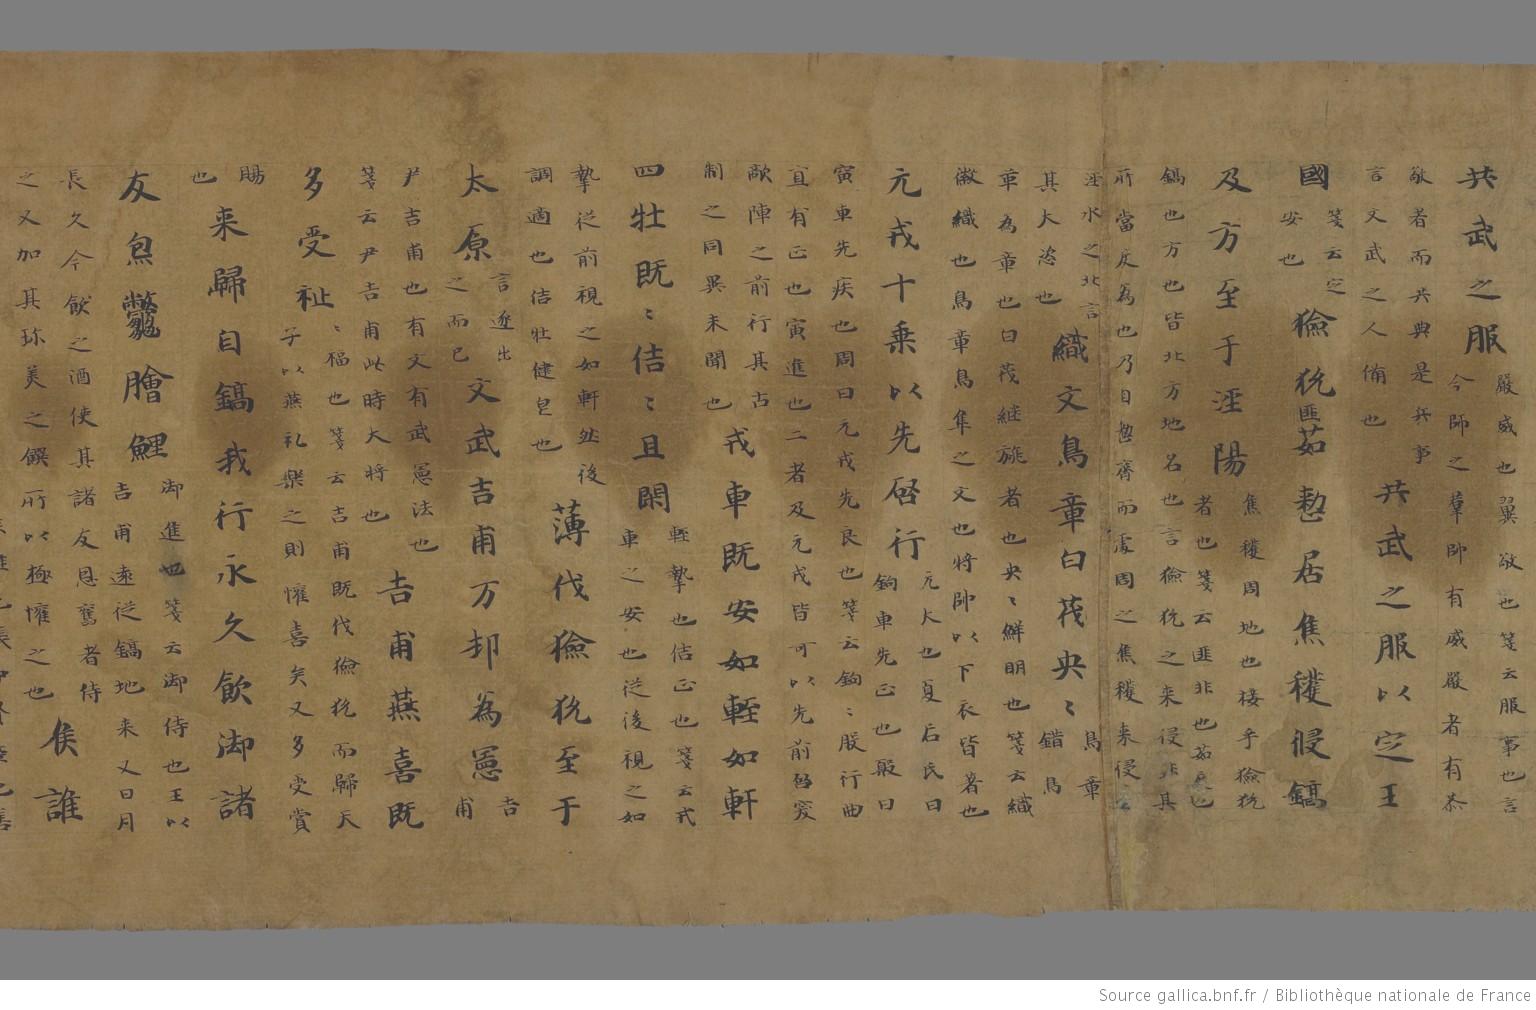 共武之服
嚴威也翼敬也箋云服事也言
今師之羣帥有威嚴者有恭
敬者而共典是兵事
言文武之人俻也
共武之服以定王
國
箋云定
安也
獫狁匪茹整居焦穫侵鎬
及方至于涇陽
焦穫周地也接乎獫狁
者也箋云匪非也茹
鎬也方也皆北方地名也言獫狁之来侵非其
所當度為也乃自整齊而處周之焦穫来侵
涇水之北言
其大恣也
織文鳥章白茷央〻
鳥章
錯鳥
章為章也白茷継旐者也央〻鮮明也箋云織
徽織也鳥章鳥隼之文也将帥以下衣皆著也
元戎十乗以先啓行
元大也夏后氏曰
鈎車先正也殷曰
寅車先疾也周曰元戎先良也箋云鈎〻股行曲
宜有正也寅進也二者及元戎皆可以先前啓突
敵陣之前行其古
制之同異未聞也
戎車既安如輊如軒
四牡既〻佶〻且閑
輊摯也佶正也箋云戎
車之安也従後視之如
摯従前視之如軒然後
調適也佶壮健皃也
薄伐獫狁至于
太原
言逐出
之而已
文武吉甫万邦為憲
吉
甫
尹吉甫也有文有武憲法也
箋云尹吉甫此時大将也
吉甫燕喜既
多受祉
〻福也箋云吉甫既伐獫狁而歸天
子以燕礼樂之則懽喜矣又多受賞
賜
也
来歸自鎬我行永久飲御諸
友炰鼈膾鯉
御進也箋云御侍也王以
吉甫逺従鎬地来又日月
長久今飲之酒使其諸友恩舊者侍
之又加其珎美之饌所以極懽之也
侯誰